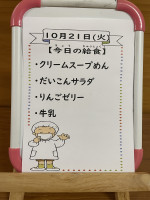 10月21日(火)
【今日の給食】
・クリームスープめん
・だいこんサラダ
・りんごゼリー
・牛乳